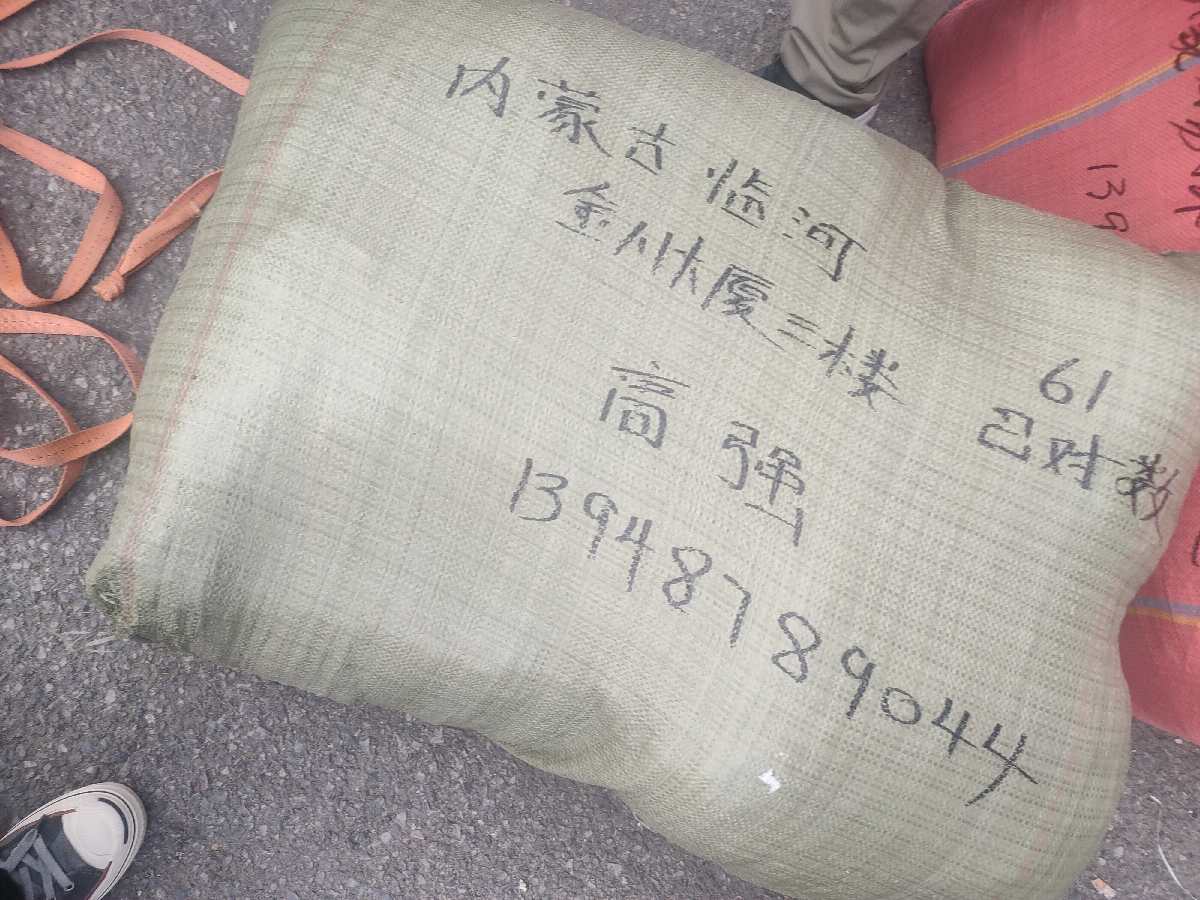 内蒙古临河
金州大厦三楼
高强
13948789044
61
己对数
139